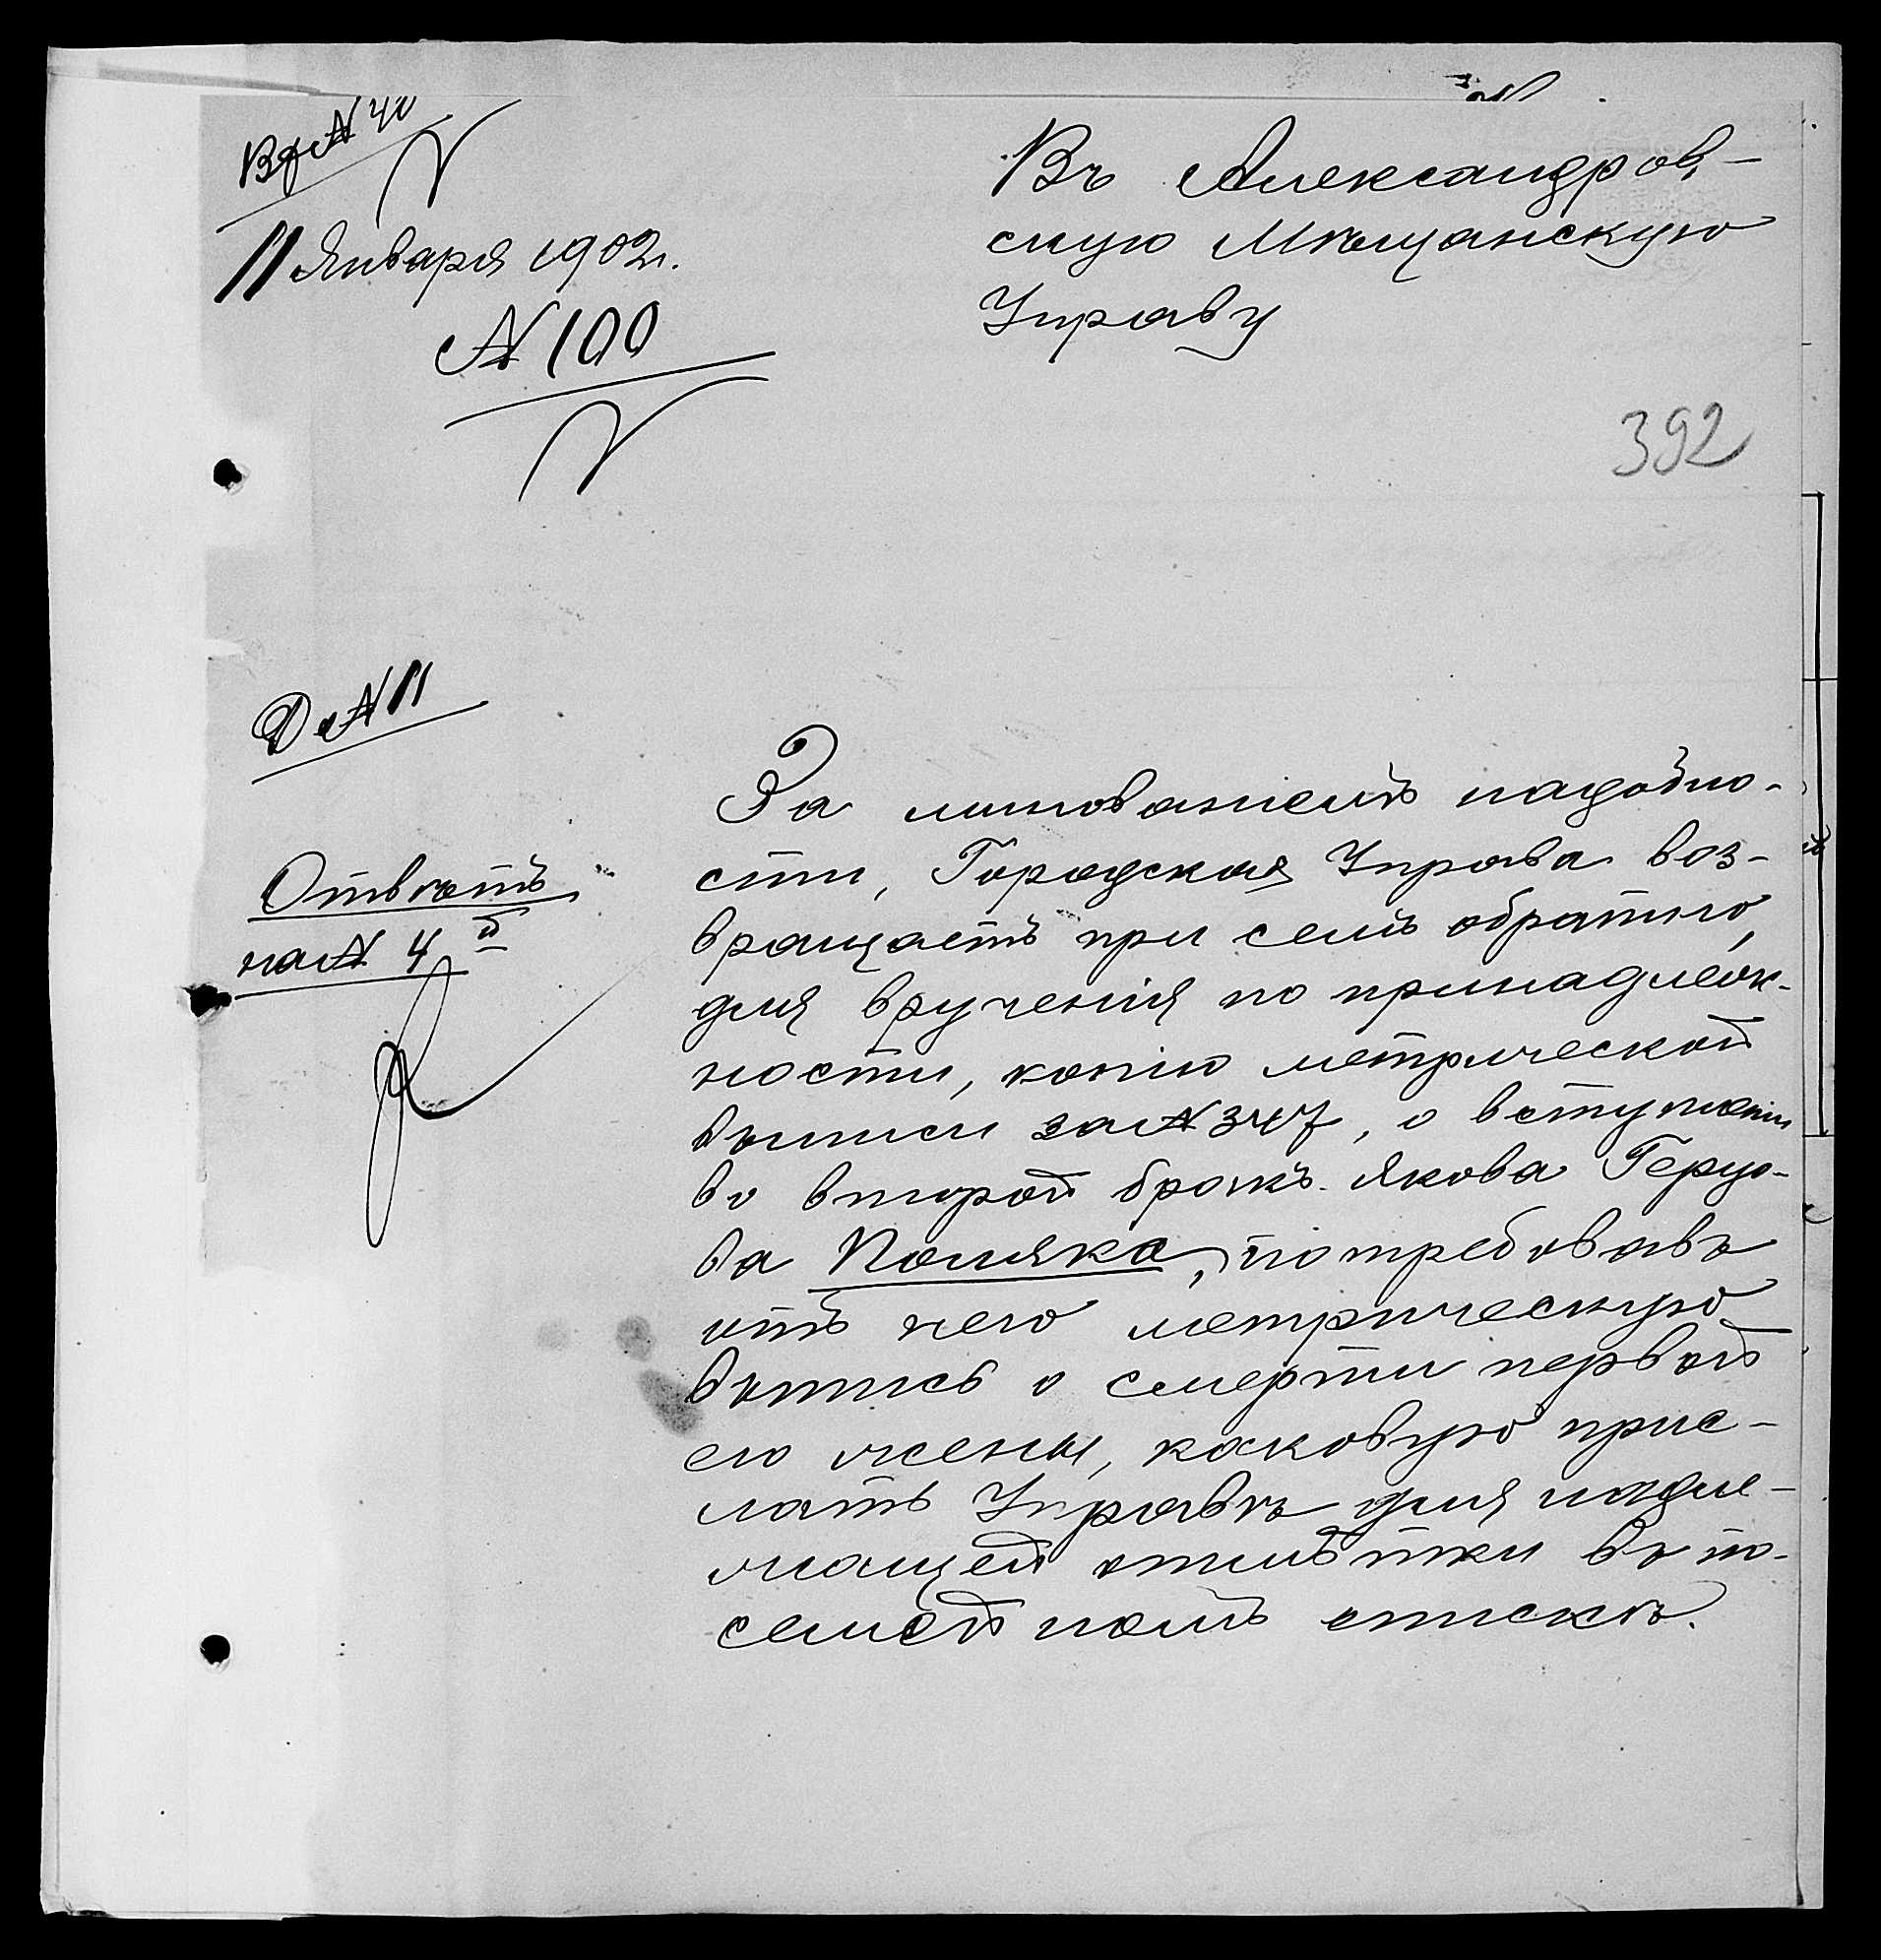 Вх № 40
11 Января 1902 г.
№ 100
Въ Александров-
скую Мѣщанскую
Управу
392
Д № 11
Отвѣтъ
на № 4
За минованіемъ надобно-
сти, Городская Управа воз-
вращаетъ при семъ обратно,
для врученія по принадлеж-
ности, копію метрической
выписи за № 347, о вступленіи
во второй бракъ Якова Геруо-
ва Поляка, потребовавъ
отъ него метрическую
выпись о смерти первой
его жены, каковую прис-
лать Управѣ для надле-
жащей отмѣтки въ по-
семейномъ спискѣ.